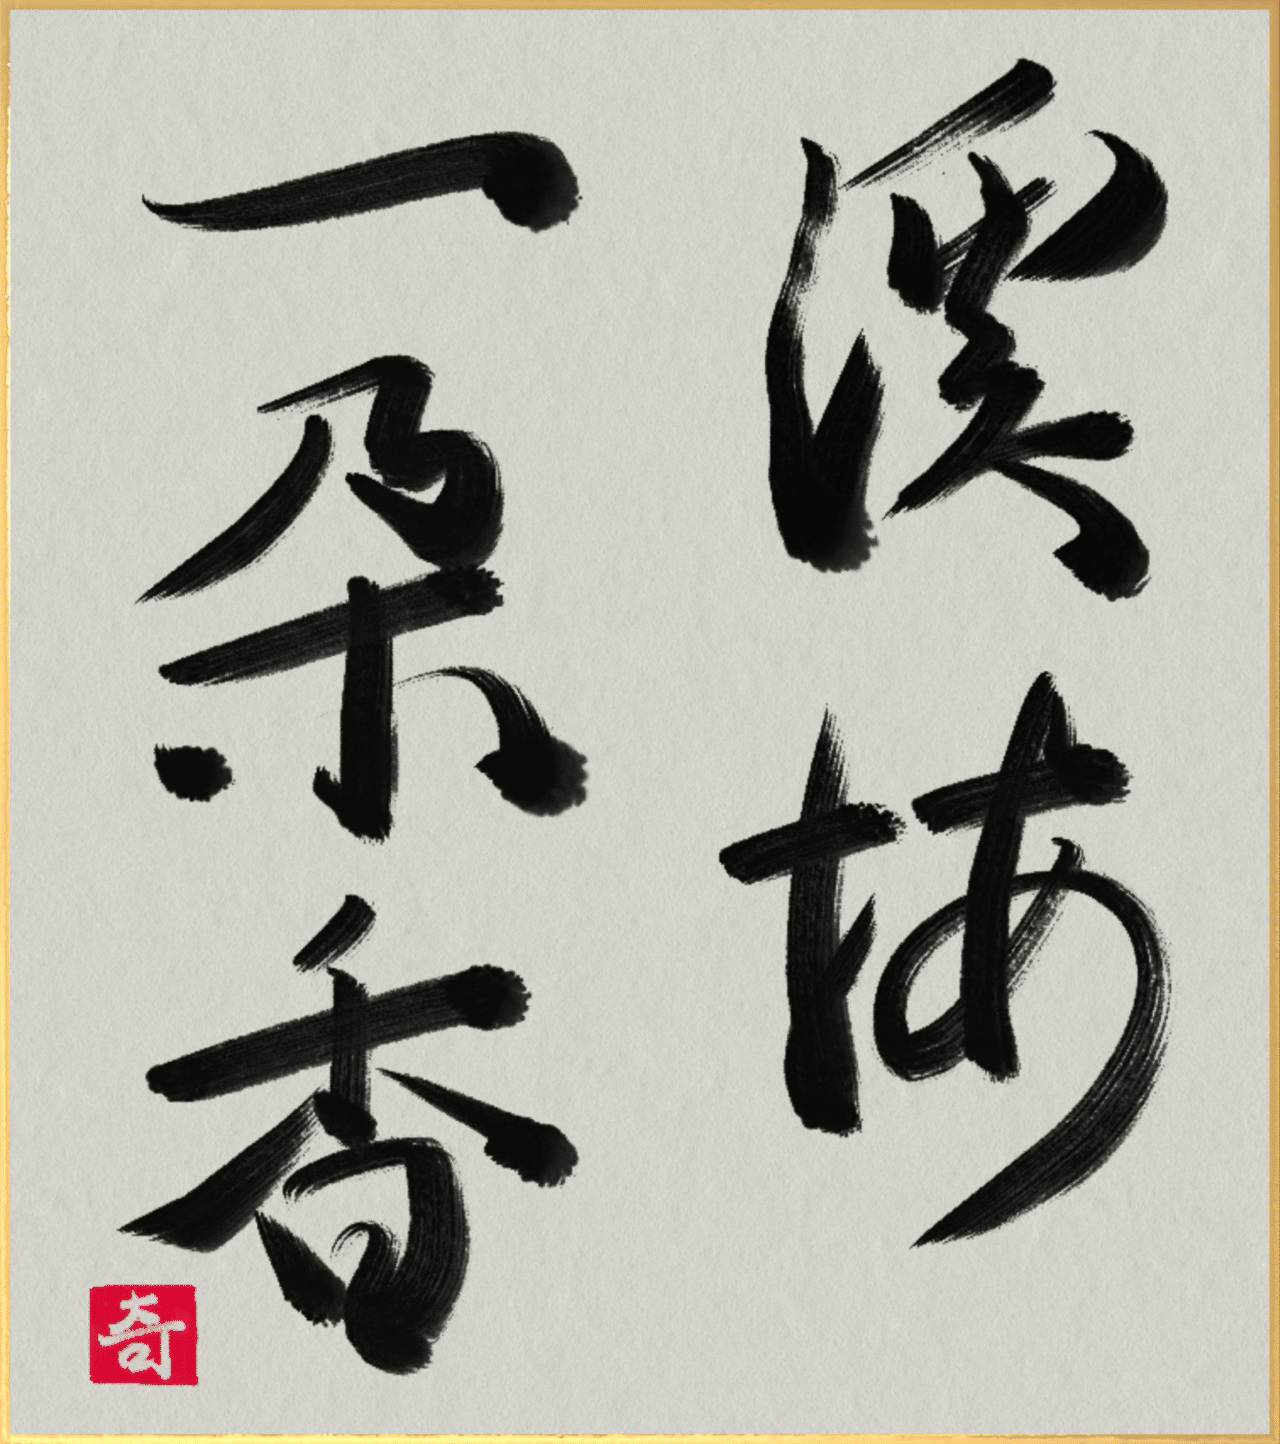 溪梅
一朶香
奇